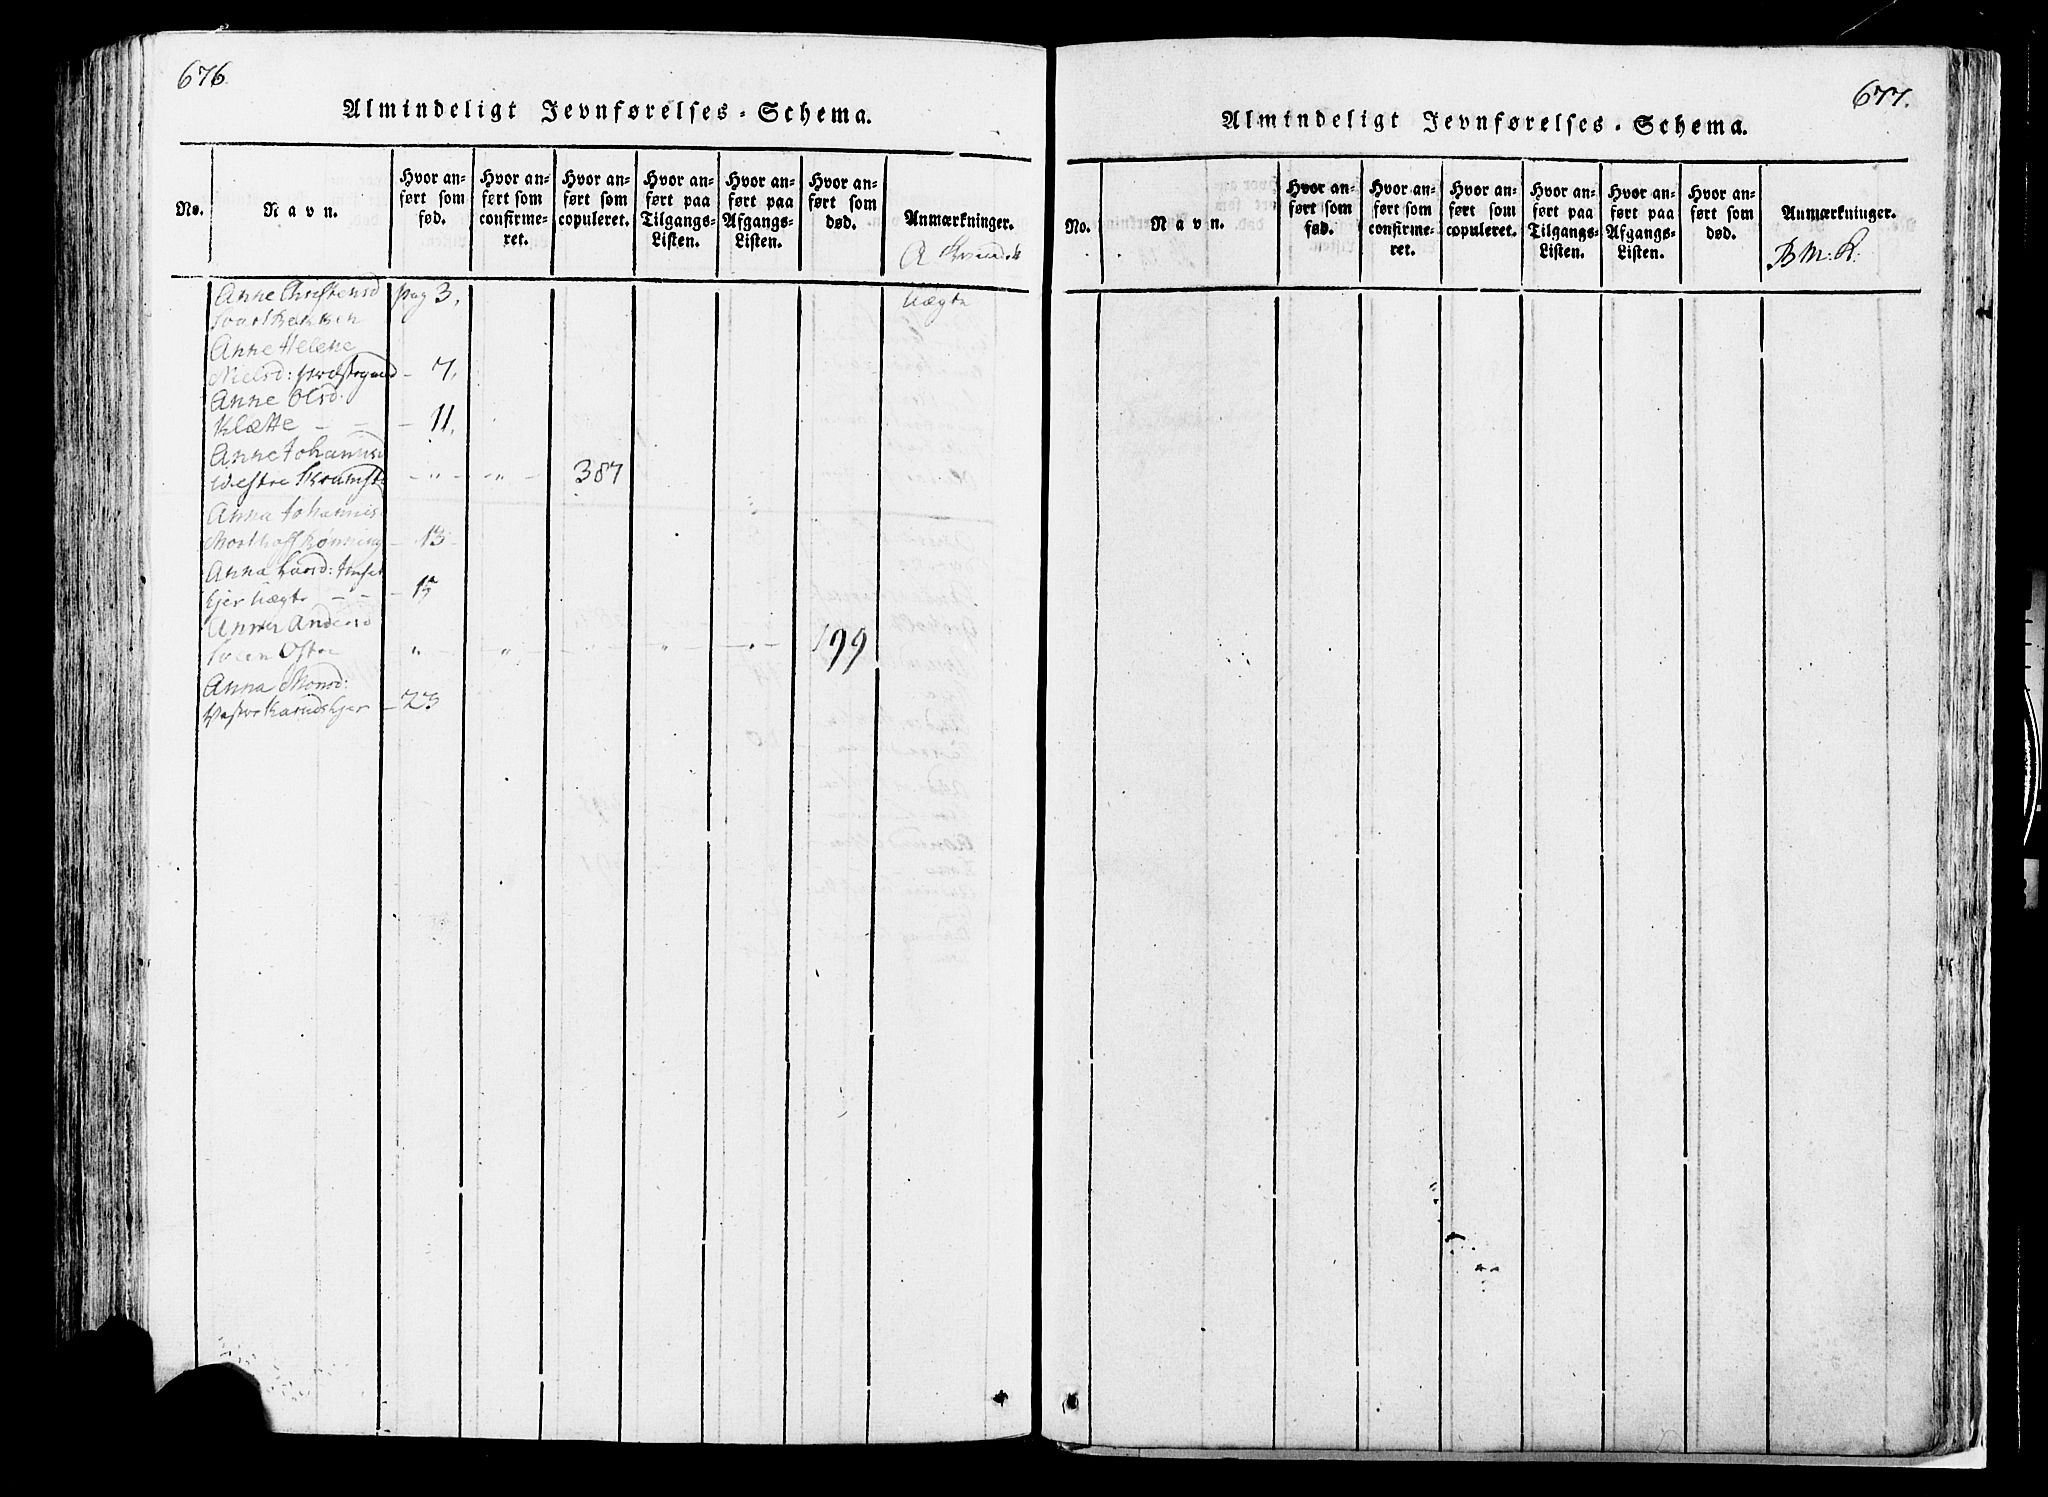 676.
Almindeligt Jevnførelses-Schema.
No.
Navn.
Hvor an-
ført som
fød.
Hvor an-
ført som
confirme-
ret.
Hvor an-
ført som
copuleret.
Hvor an-
ført paa
Tilgangs-
Listen.
Hvor an-
ført paa
Afgangs-
Listen.
Hvor an-
ført som
død.
Anmærkninger.
A
Anne Christensd pag 3. Uægte
Anne Helene
Nielsd: - 7.
Anne Olsd.
Klætte - - - 11.
Anne Johannesd
Westre - " - " - 387
Anna Johannes
- 13 -
Anna Larsd:
Ejer Uægte - - - 15
Andersd
Østre " - " - " - " - " - 199
Anna Monsd:
- 23
677.
Almindeligt Jevnførelses-Schema.
No.
Navn.
Hvor an-
ført som
fød.
Hvor an-
ført som
confirme-
ret.
Hvor an-
ført som
copuleret.
Hvor an-
ført paa
Tilgangs-
Listen.
Hvor an-
ført paa
Afgangs-
Listen.
Hvor an-
ført som
død.
Anmærkninger.
B M: K: